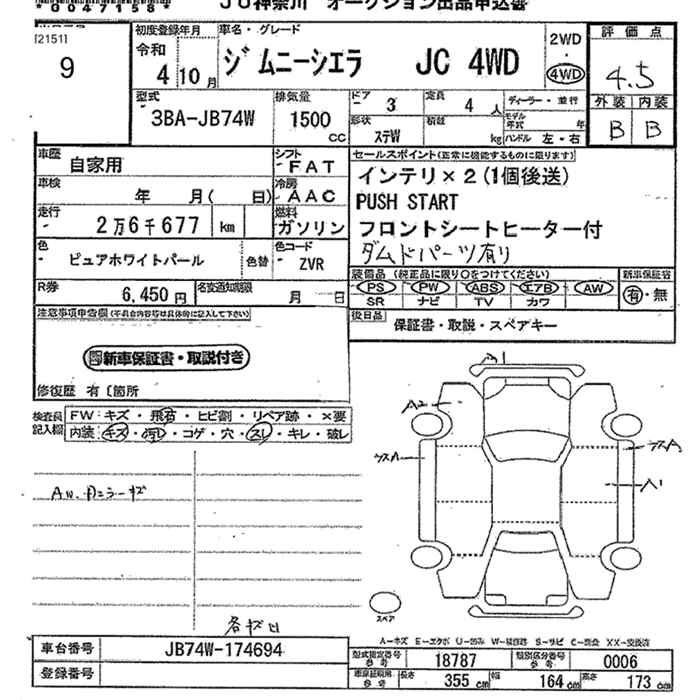 *0047158*
JU神奈川 オークション出品申込書
[2151]
9
初度登録年月
令和
4 10 月
車名・グレード
ジムニーシエラ JC 4WD
2WD
・
4WD
評価点
4.5
外装 内装
B B
型式
3BA-JB74W
排気量
1500
cc
ドア
3
定員
4 人
ディーラー・並行
形状
ステW
積載
kg
モデル年式 年
ハンドル 左・右
車歴
自家用
シフト
FAT
セールスポイント(正常に機能するものに限ります)
インテリ×2(1個後送)
PUSH START
フロントシートヒーター付
ダムドパーツ有り
車検
年 月( 日)
冷房
AAC
走行
2万6千677 km
燃料
ガソリン
色
ピュアホワイトパール
色替
色コード
ZVR
装備品 (純正品に限り○をつけてください)
PS PW ABS エアB AW
SR ナビ TV カワ
新車保証書
有・無
R券
6,450円
名変通知期限
月 日
後日品
保証書・取説・スペアキー
注意事項申告欄(不具合内容等は具体的に記入して下さい)
新車保証書・取説付き
修復歴 有〔箇所
検査員
記入欄
FW:キズ・飛石・ヒビ割・リペア跡・×要
内装:キズ・汚レ・コゲ・穴・スレ・キレ・破レ
A1
A2
A1
スペア
A-キズ E-エクボ U-凹み W-補修跡 S-サビ C-腐食 XX-交換済
車台番号
JB74W-174694
登録番号
型式指定番号
参考
18787
類別区分番号
参考
0006
車庫証明用
参考
長さ
355 cm
幅
164 cm
高さ
173 cm